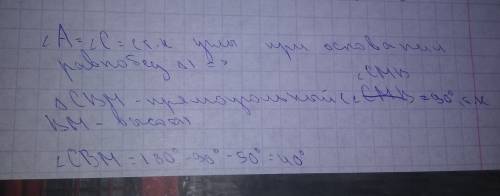 ∠A=∠C=∠т.к углы при основании
равнобед Δ) =>
∠CMB
ΔCBM - прямоугольный (∠CMB = 90°, т.к
BM - высота
∠CBM = 180° - 90° - 50° = 40°